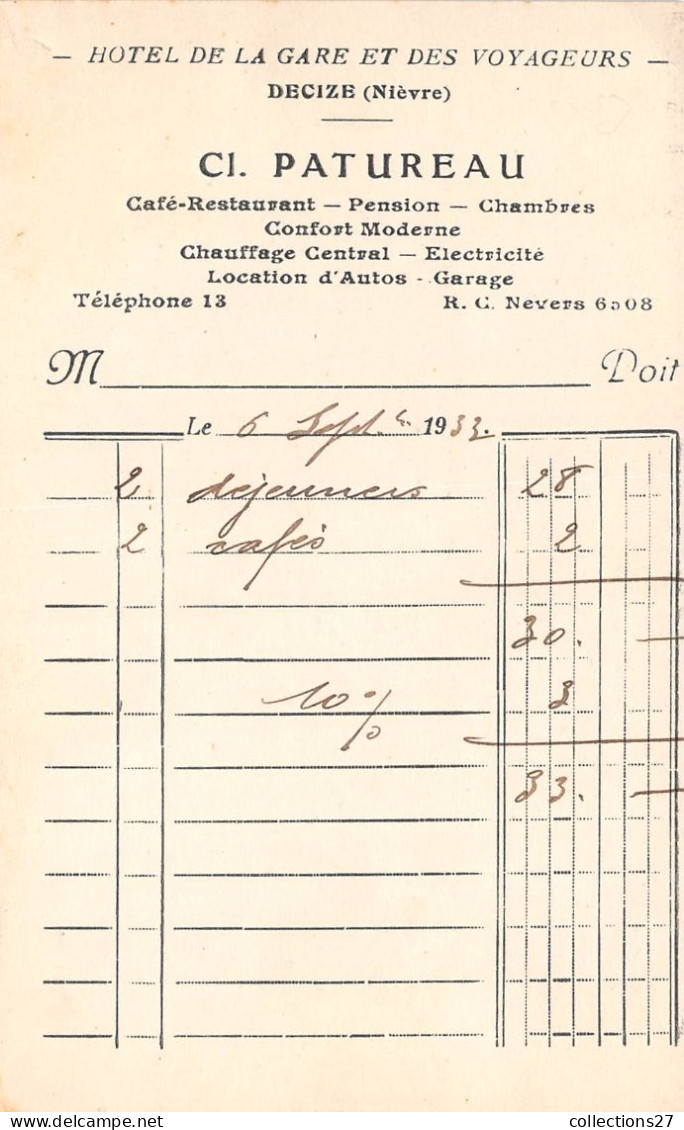 — HOTEL DE LA GARE ET DES VOYAGEURS —
DECIZE (Nièvre)
Cl. PATUREAU
Café-Restaurant — Pension — Chambres
Confort Moderne
Chauffage Central — Electricité
Location d'Autos - Garage
Téléphone 13 R. C. Nevers 6508
M Doit
Le 6 Sept. 1933
2 déjeuners 28
2 cafés 2
30. —
10% 3
33. —
collections27